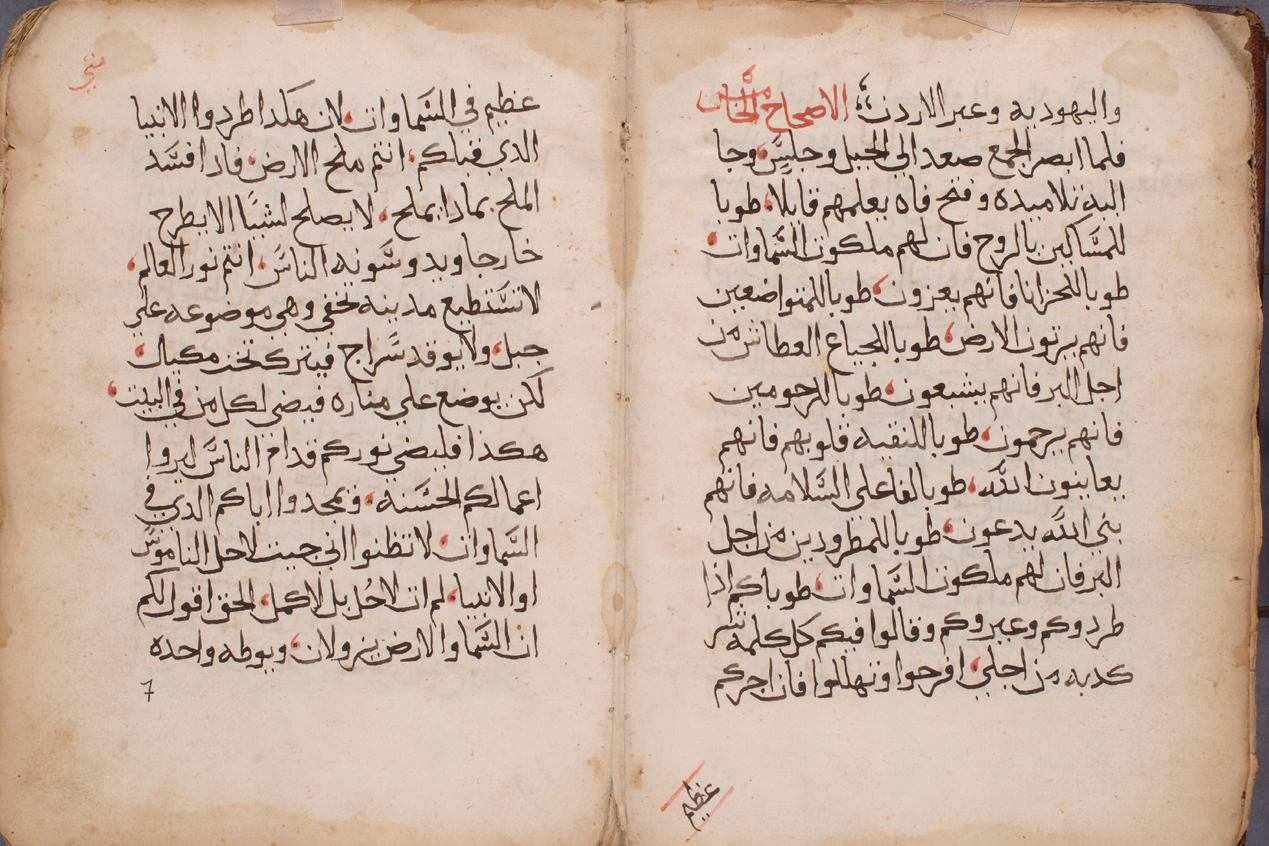 واليهوديه وعبر الاردن الاصحاح الخامس
فلما ابصر الجمع صعد الى الجبل وجلس وجا
اليه تلاميذه وفتح فاه يعلمهم قايلا طوبا
للمساكين بالروح فان لهم ملكوت السماوات
طوبا للحزانا فانهم يعزون طوبا للمتواضعين
فانهم يرتون الارض طوبا للجياع العطاش من
اجل البر فانهم يشبعون طوبا للرحومين
فانهم يرحمون طوبا للنقيه قلوبهم فانهم
يعاينون الله طوبا لفاعلى السلامه فانهم
بني الله يدعون طوبا للمطرودين من اجل
البر فان لهم ملكوت السماوات طوباكم اذا
طردوكم وعيروكم وقالوا فيكم كل كلمه شر
كدبه من اجلي افرحوا وتهللوا فان اجركم
عظيم
متي
عظيم في السماوات لان هكدا طردوا الانبيا
الدي قبلكم انتم ملح الارض فادا فسد
الملح بمادا يملح لا يصلح لشيا الا يطرح
خارجا ويدوسونه الناس انتم نور العالم
لا تستطيع مدينه تخفى وهي موضوعه علي
جبل ولا يوقد سراج فيترك تحت مكيال
لكن يوضع علي مناره فيضي لكل من في البيت
هكدا فليضي نوركم قدام الناس ليروا
اعمالكم الحسنه ويمجدوا اباكم الدي في
السماوات لا تظنوا اني جيت لاحل الناموس
او الانبيا لم ات لاحل بل لاكمل الحق اقول لكم
ان السما والارض يزولان ويوطه واحده
7